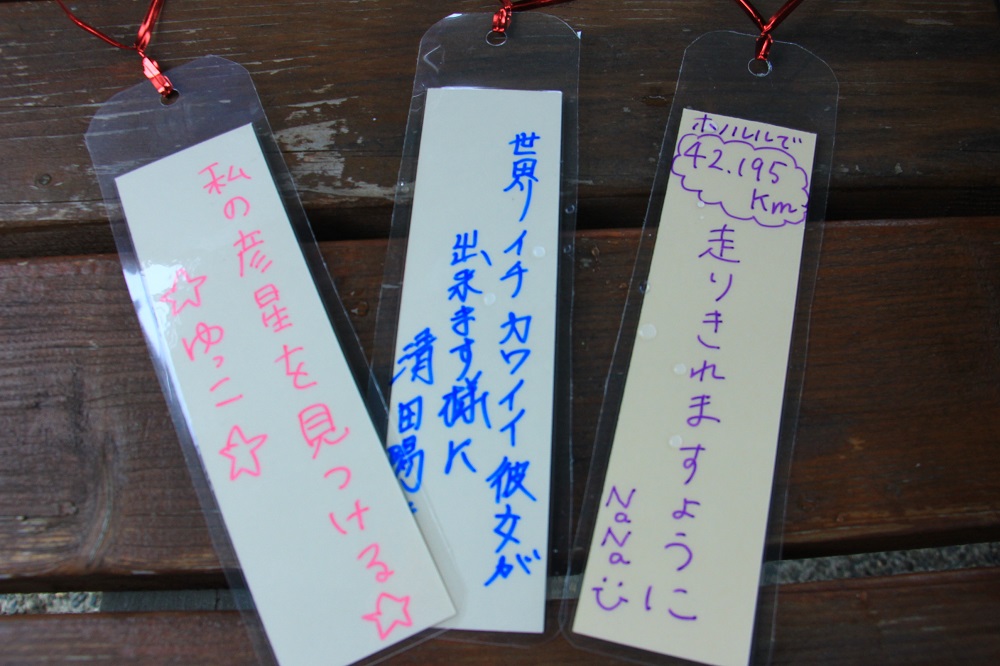 私の彦星を見つける☆
☆ゆっこ☆
世界ノイチカワイイ彼女が
出来ます様に
清田陽
ホノルルで
42.195
Km
走りきれますように
NaNa